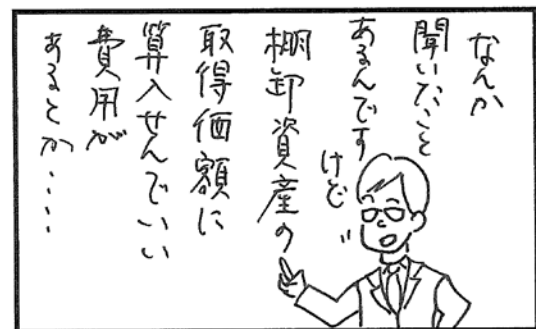 なんか
聞いたこと
あるんです
けど
棚卸資産の
取得価額に
算入せんでいい
費用が
あるとか……